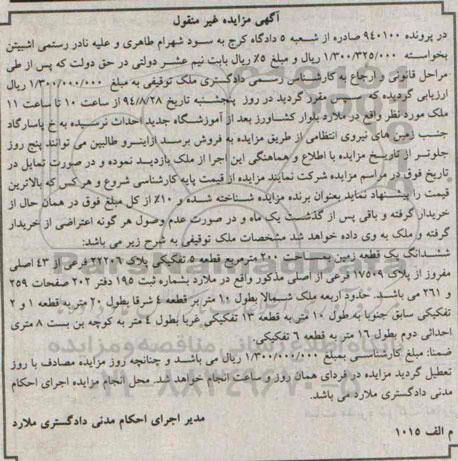 آگهی مزایده غیر منقول
در پرونده ۹۴۰۱۰۰ صادره از شعبه ۵ دادگاه کرج به سود شهرام طاهری و علیه نادر رستمی اشبیتن
بخواسته ۱/۳۰۰/۳۲۵/۰۰۰ ریال و مبلغ ۵٪ ریال بابت نیم عشر دولتی در حق دولت که پس از طی
مراحل قانونی و ارجاع به کارشناس رسمی دادگستری ملک توقیفی به مبلغ ۱/۳۰۰/۰۰۰/۰۰۰ ریال
ارزیابی گردیده که سپس مقرر گردید در روز پنجشنبه تاریخ ۹۴/۸/۲۸ از ساعت ۱۰ تا ساعت ۱۱
ملک مورد نظر واقع در ملارد بلوار کشاورز بعد از آموزشگاه جدید احداث نرسیده به خ پاسارگاد
جنب زمین های نیروی انتظامی از طریق مزایده به فروش برسد ازاینرو طالبین می توانند پنج روز
جلوتر از تاریخ مزایده با اطلاع و هماهنگی این اجرا از ملک بازدید نموده و در صورت تمایل در
تاریخ فوق در مراسم مزایده شرکت نمایند مزایده از قیمت پایه کارشناسی شروع و هر کس که بالاترین
قیمت را پیشنهاد نماید بعنوان برنده مزایده شناخته شده و ۱۰٪ از کل مبلغ فوق در همان حال از
خریدار گرفته و باقی پس از گذشت یک ماه و در صورت عدم وصول هر گونه اعتراضی از خریدار
گرفته و ملک به وی داده خواهد شد مشخصات ملک توقیفی به شرح زیر می باشد:
ششدانگ یک قطعه زمین به مساحت ۲۰۰ مترمربع قطعه ۵ تفکیکی پلاک ۲۲۲۰۶ فرعی از ۴۳ اصلی
مفروز از پلاک ۱۷۵۰۹ فرعی از اصلی مذکور واقع در ملارد بشماره ثبت ۱۹۵ دفتر ۲۰۲ صفحات ۲۵۹
و ۲۶۱ می باشد. حدود اربعه ملک شمالا بطول ۱۰ متر بر قطعه ۴ شرقا بطول ۲۰ متر به قطعه ۱ و ۲
تفکیکی سابق جنوبا به طول ۱۰ متر به قطعه ۱۲ تفکیکی غربا بطول ۴ متر به کوچه بن بست ۸ متری
احداثی دوم بطول ۱۶ متر به قطعه ۶ تفکیکی.
ضمنا: مبلغ کارشناسی بمبلغ ۱/۳۰۰/۰۰۰/۰۰۰ ریال می باشد و چنانچه روز مزایده مصادف با روز
تعطیل گردید مزایده در فردای همان روز و ساعت انجام خواهد شد. محل انجام مزایده اجرای احکام
مدنی دادگستری ملارد می باشد.
مدیر اجرای احکام مدنی دادگستری ملارد
م الف ۱۰۱۵